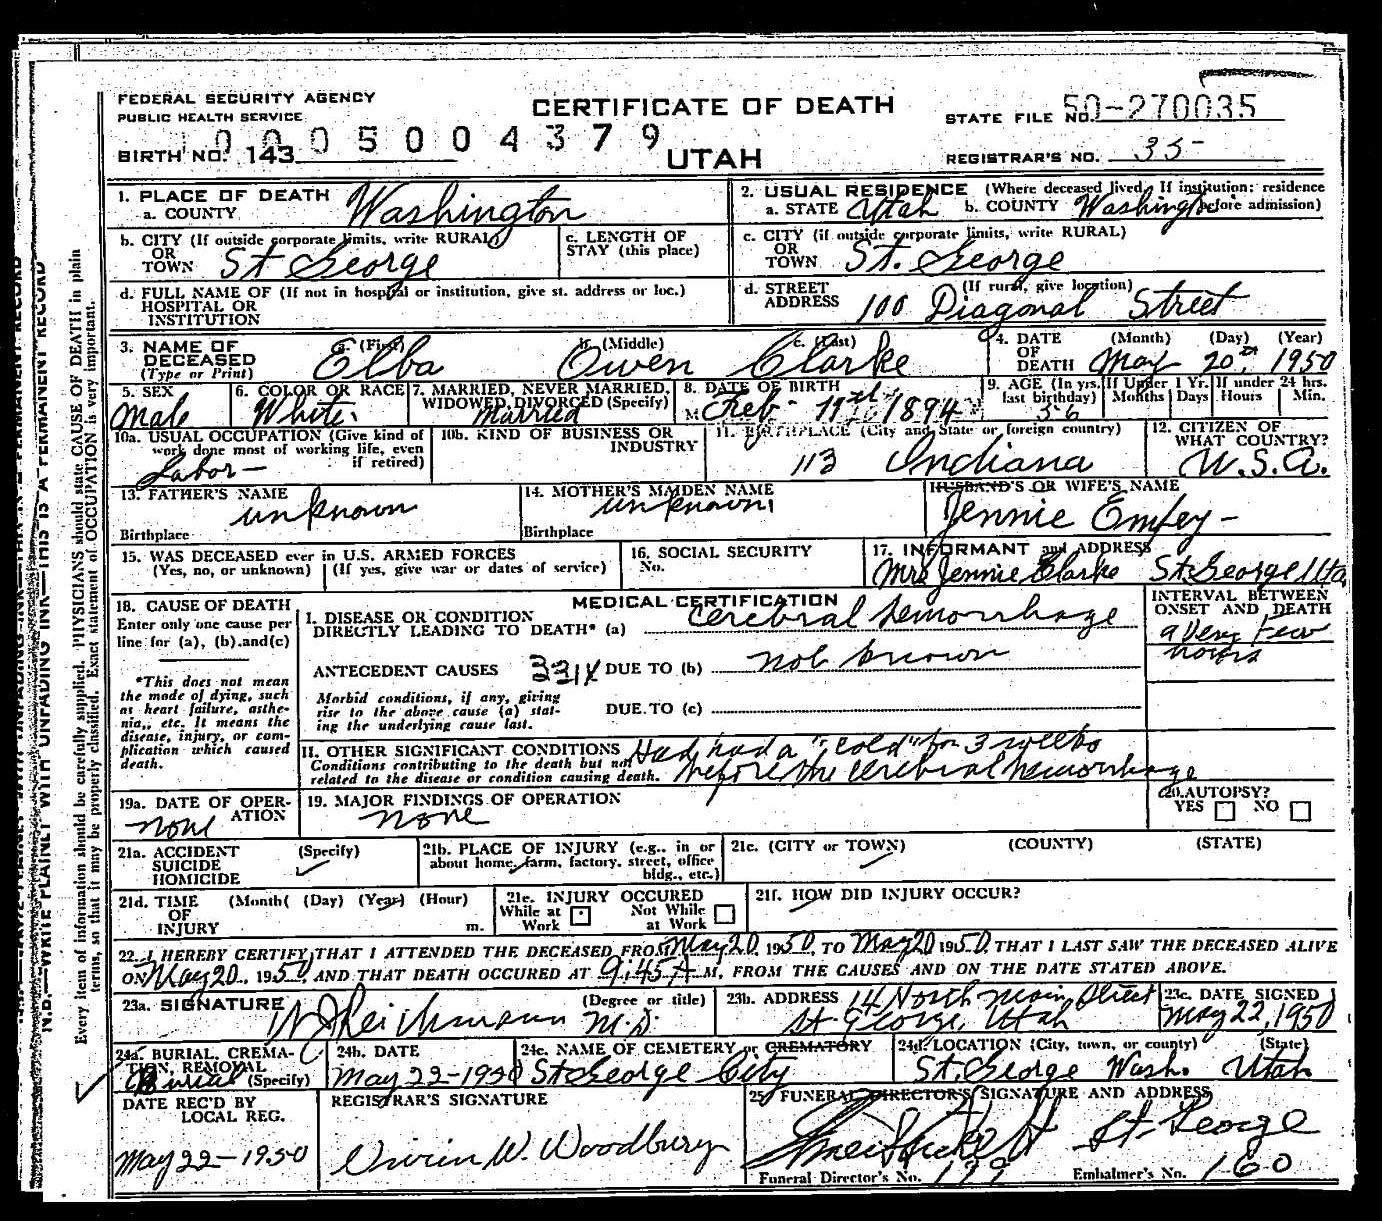 FEDERAL SECURITY AGENCY
PUBLIC HEALTH SERVICE
CERTIFICATE OF DEATH
STATE FILE NO. 50-270035
0005004379
BIRTH NO. 143
UTAH
REGISTRAR'S NO. 35
1. PLACE OF DEATH
a. COUNTY Washington
2. USUAL RESIDENCE (Where deceased lived. If institution: residence before admission)
a. STATE Utah b. COUNTY Washington
b. CITY (If outside corporate limits, write RURAL) OR TOWN St George
c. LENGTH OF STAY (this place)
c. CITY (if outside corporate limits, write RURAL) OR TOWN St. George
d. FULL NAME OF (If not in hospital or institution, give st. address or loc.) HOSPITAL OR INSTITUTION
d. STREET ADDRESS (If rural, give location) 100 Diagonal Street
3. NAME OF DECEASED (Type or Print)
a. (First) Elba b. (Middle) Owen c. (Last) Clarke
4. DATE OF DEATH (Month) (Day) (Year) May 20th 1950
5. SEX Male
6. COLOR OR RACE White
7. MARRIED, NEVER MARRIED, WIDOWED, DIVORCED (Specify) Married
8. DATE OF BIRTH Feb 1894
9. AGE (In yrs. last birthday) 56
If Under 1 Yr. Months Days
If under 24 hrs. Hours Min.
10a. USUAL OCCUPATION (Give kind of work done most of working life, even if retired) Labor
10b. KIND OF BUSINESS OR INDUSTRY
11. BIRTHPLACE (City and State or foreign country) 113 Indiana
12. CITIZEN OF WHAT COUNTRY? U.S.A.
13. FATHER'S NAME unknown
Birthplace
14. MOTHER'S MAIDEN NAME unknown
Birthplace
HUSBAND'S OR WIFE'S NAME
Jennie Empey
15. WAS DECEASED ever in U.S. ARMED FORCES
(Yes, no, or unknown) (If yes, give war or dates of service)
16. SOCIAL SECURITY No.
17. INFORMANT and ADDRESS
Mrs Jennie Clarke St. George Uta
18. CAUSE OF DEATH
Enter only one cause per line for (a), (b), and (c)
*This does not mean the mode of dying, such as heart failure, asthenia, etc. It means the disease, injury, or complication which caused death.
MEDICAL CERTIFICATION
I. DISEASE OR CONDITION DIRECTLY LEADING TO DEATH* (a) Cerebral hemorrhage
INTERVAL BETWEEN ONSET AND DEATH
a Very Few hours
ANTECEDENT CAUSES 331X DUE TO (b) not known
Morbid conditions, if any, giving rise to the above cause (a) stating the underlying cause last.
DUE TO (c)
II. OTHER SIGNIFICANT CONDITIONS
Conditions contributing to the death but not related to the disease or condition causing death.
Had had a "cold" for 3 weeks
before the cerebral hemorrhage
19a. DATE OF OPERATION none
19. MAJOR FINDINGS OF OPERATION none
20. AUTOPSY? YES NO
21a. ACCIDENT SUICIDE HOMICIDE (Specify)
21b. PLACE OF INJURY (e.g., in or about home, farm, factory, street, office bldg., etc.)
21c. (CITY or TOWN) (COUNTY) (STATE)
21d. TIME OF INJURY (Month) (Day) (Year) (Hour) m.
21e. INJURY OCCURED
While at Work Not While at Work
21f. HOW DID INJURY OCCUR?
22. I HEREBY CERTIFY THAT I ATTENDED THE DECEASED FROM May 20, 1950, TO May 20 1950, THAT I LAST SAW THE DECEASED ALIVE
ON May 20, 1950, AND THAT DEATH OCCURED AT 9:45 A M, FROM THE CAUSES AND ON THE DATE STATED ABOVE.
23a. SIGNATURE (Degree or title) Reichmann M.D.
23b. ADDRESS 14 North Main Street
St. George, Utah
23c. DATE SIGNED May 22, 1950
24a. BURIAL, CREMATION, REMOVAL (Specify) Burial
24b. DATE May 22-1950
24c. NAME OF CEMETERY or CREMATORY St George City
24d. LOCATION (City, town, or county) (State) St. George Wash. Utah
DATE REC'D BY LOCAL REG. May 22-1950
REGISTRAR'S SIGNATURE W. Woodbury
25. FUNERAL DIRECTOR'S SIGNATURE AND ADDRESS
St. George
Funeral Director's No. 199 Embalmer's No. 160
N.B.—WRITE PLAINLY WITH UNFADING INK—THIS IS A PERMANENT RECORD
Every item of information should be carefully supplied. PHYSICIANS should state CAUSE OF DEATH in plain
terms, so that it may be properly classified. Exact statement of OCCUPATION is very important.